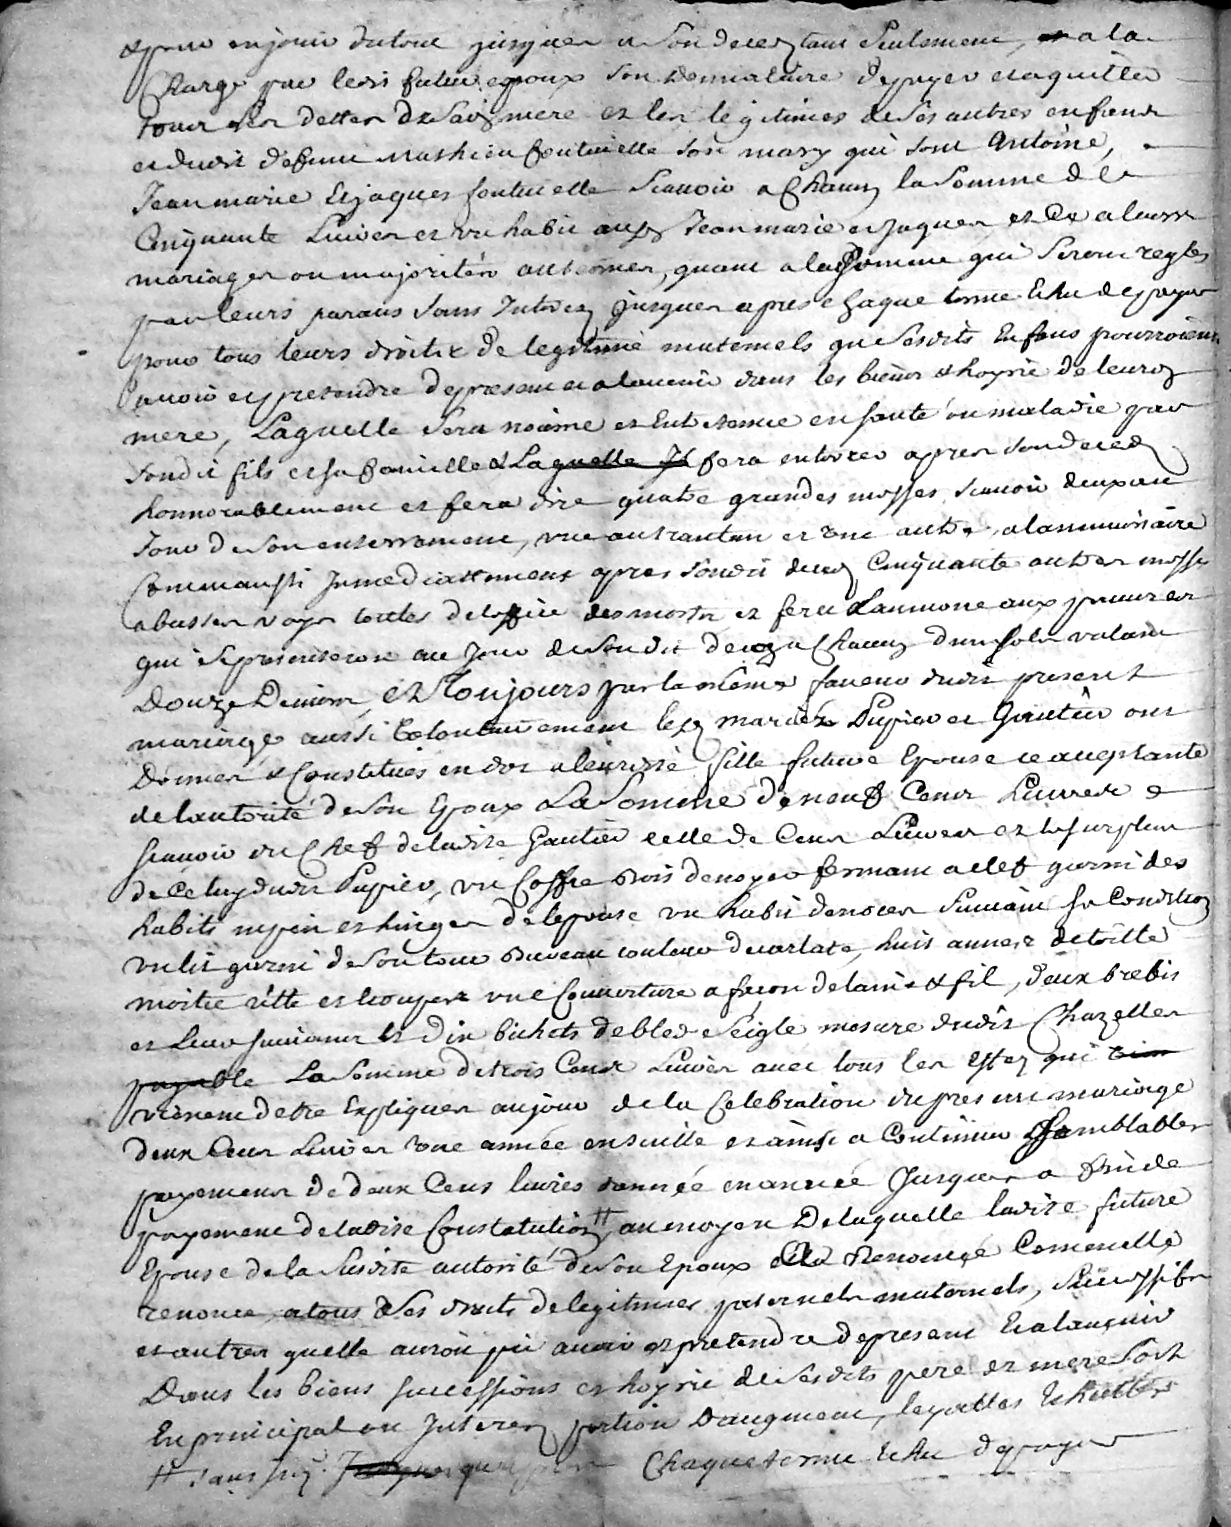 & pour en jouir du tout jusques a son deced tant seulement, a la
Charge par ledit futur epoux son donnataire de payer et aquitter
tous les dettes de sad mere et les legitimes de ses autres enfans
et dudit defunt Mathieu fontvielle son mary qui sont Antoine,
Jean marie Et jaques fontvielle Scavoir a Chacun la Somme de
Cinquante Livres et un habit auxd Jean marie et jaques, et Ce a leurs
mariages ou majorités au termes, quant a la Somme qui Seront regles
par leurs parans sans Interez jusques apres chaque terme Echu de payer
pour tous leurs droits de legitime maternels que sesdits Enfans pourroient
avoir et pretendre de present et a lavenir dans les biens & hoyrie de leurd
mere, Laquelle Sera nourrie et Entretenue en santé ou maladie par
sondit fils et sa famille & Laquelle Il fera enterrer apres son deced
honnorablement et fera dire quatre grandes messes, scavoir deux au
Jour de son enterrement, une au trantain et une autre, a lanniversaire
Comme aussi Immediattement apres sondit deced Cinquante autres messes
a basses voyx toutes de loffice des morts et fera Laumone aux pauvres
qui se presenteront au Jour de sondit deced a Chacun d'un sols valant
Douze Deniers, Et Toujours par la même faveur dudit present
mariage aussi Volontairement lesd mariéz Pupier et Gautier ont
Donnés & Constitués en dot a leurditte fille future Epouse ce acceptante
de lautorité de son Epoux La Somme de neuf Cens Livres
scavoir du Chef de ladite Gautier celle de Cens Livres et le surplus
de Celuy dudit Pupier, un Coffre bois de noyer fermant a clef garni des
habits nipes et linges de lepouse un habit de noces suivant sa Condition
un lit garni de son tour Bureau couleur decarlate, huit aunes de toille
moitie ritte et lautre une Couverture a façon de laine & fil, deux brebis
et Leur suivant Et dix bichets de bled Seigle mesure dudit Chazelles
payable La Somme de trois Cens Livres avec tous les Effets qui
vienent detre Expliques au jour de la Celebration du present mariage
deux Cens Livres une année ensuitte et ainsi a Continuer Semblables
payemens de deux Cens livres dannée en année Jusques a fin de
payement de ladite Constitution ++ au moyen De laquelle ladite future
Epouse de la susdite autorité de son Epoux a Renoncé Comme elle
renonce a tous Ses droits de legitimes paternels maternels, successifs
et autres quelle auroit pu avoir et pretendre de present Et a lavenir
Dans les biens successions et hoyrie de sesdits pere et mere soit
En principal ou Interez portion Daugment, legattes Echuttes
++ sans Int. Jusques apres Chaque terme Echu de payer